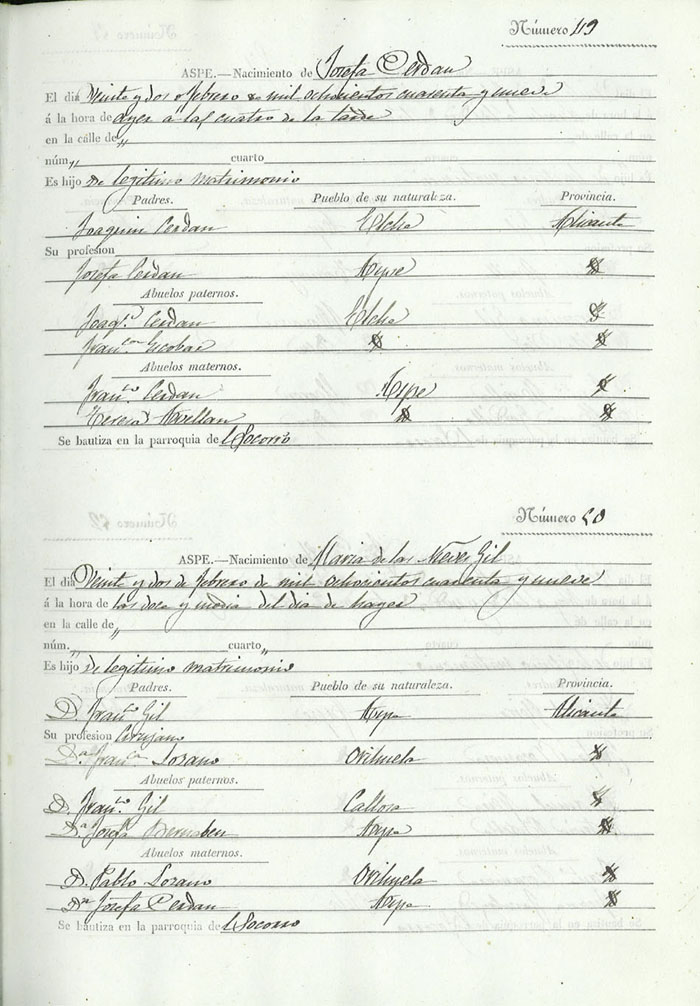 Número 49
ASPE.—Nacimiento de Josefa Cerdan
El dia Veinte y dos febrero de mil ochocientos cuarenta y nueve
á la hora de ayer á las cuatro de la tarde
en la calle de „
núm „ cuarto
Es hijo de legitimo matrimonio
Padres. Pueblo de su naturaleza. Provincia.
Joaquin Cerdan Elche Alicante
Su profesion
Josefa Cerdan Aspe
Abuelos paternos.
Joaqn. Cerdan Elche
Franca Escobar
Abuelos maternos.
Franco Cerdan Aspe
Teresa Avellan
Se bautiza en la parroquia de l Socorro
Número 50
ASPE.—Nacimiento de Maria de las Nieves Gil
El dia Veinte y dos de febrero de mil ochocientos cuarenta y nueve
á la hora de las doce y media del dia de
en la calle de „
núm. „ cuarto „
Es hijo de legitimo matrimonio
Padres. Pueblo de su naturaleza. Provincia.
D. Franco Gil Aspe Alicante
Su profesion Cirujano
D.a Franca Lozano Orihuela
Abuelos paternos.
D. Franco Gil Callosa
D.a Josefa Bernabeu Aspe
Abuelos maternos.
D. Pablo Lozano Orihuela
Da Josefa Cerdan Aspe
Se bautiza en la parroquia de l Socorro